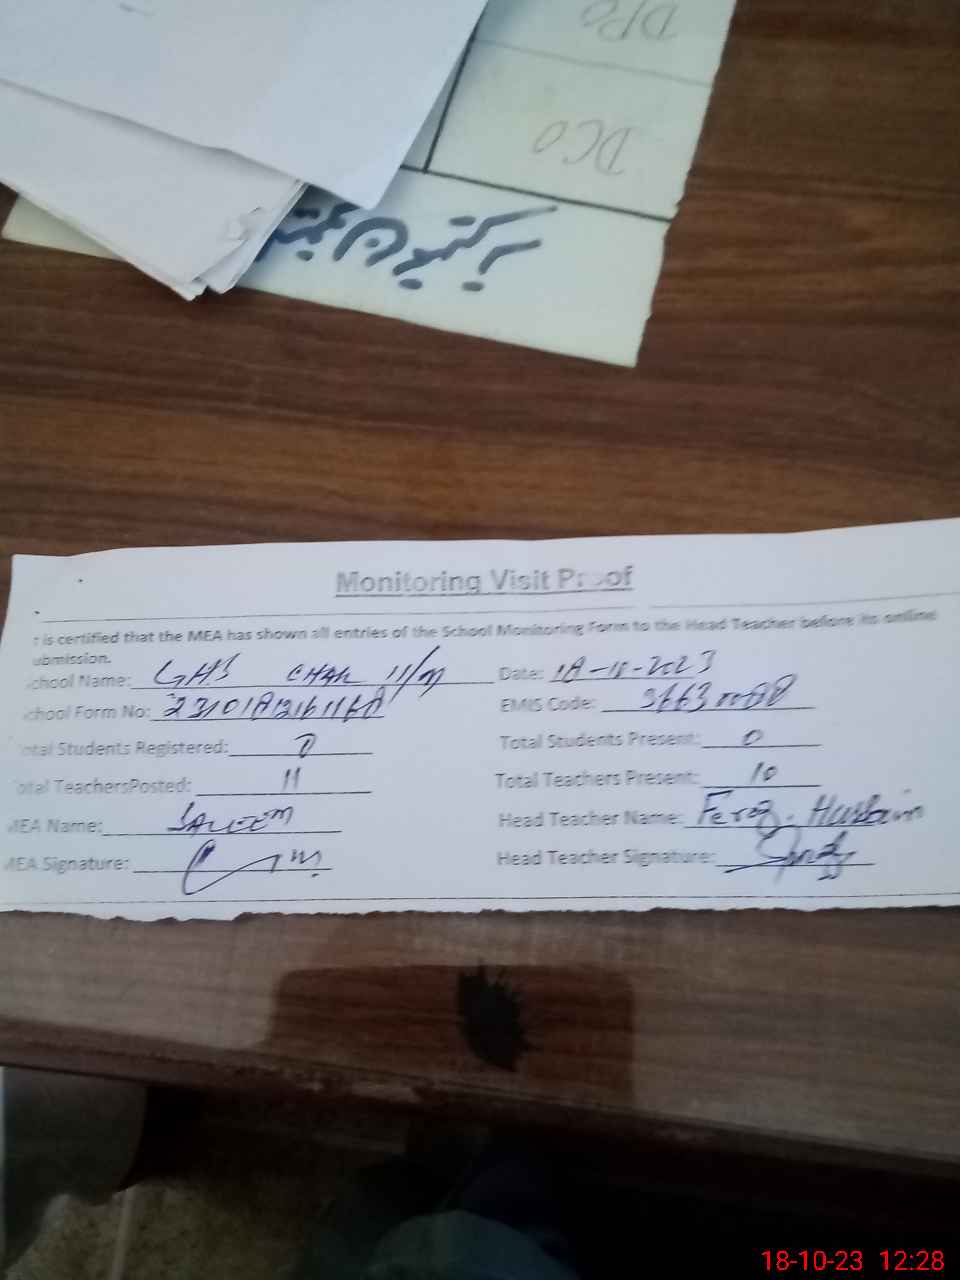 DPO
DCO
Monitoring Visit Proof
is certified that the MEA has shown all entries of the School Monitoring Form to the Head Teacher before its online
ubmission.
chool Name: GHS CHAK 11/M Date: 18-10-2023
chool Form No: EMIS Code:
otal Students Registered: 0 Total Students Present: 0
otal TeachersPosted: 11 Total Teachers Present: 10
MEA Name: SALEEM Head Teacher Name: Feroz. Hussain
MEA Signature: Head Teacher Signature:
18-10-23 12:28